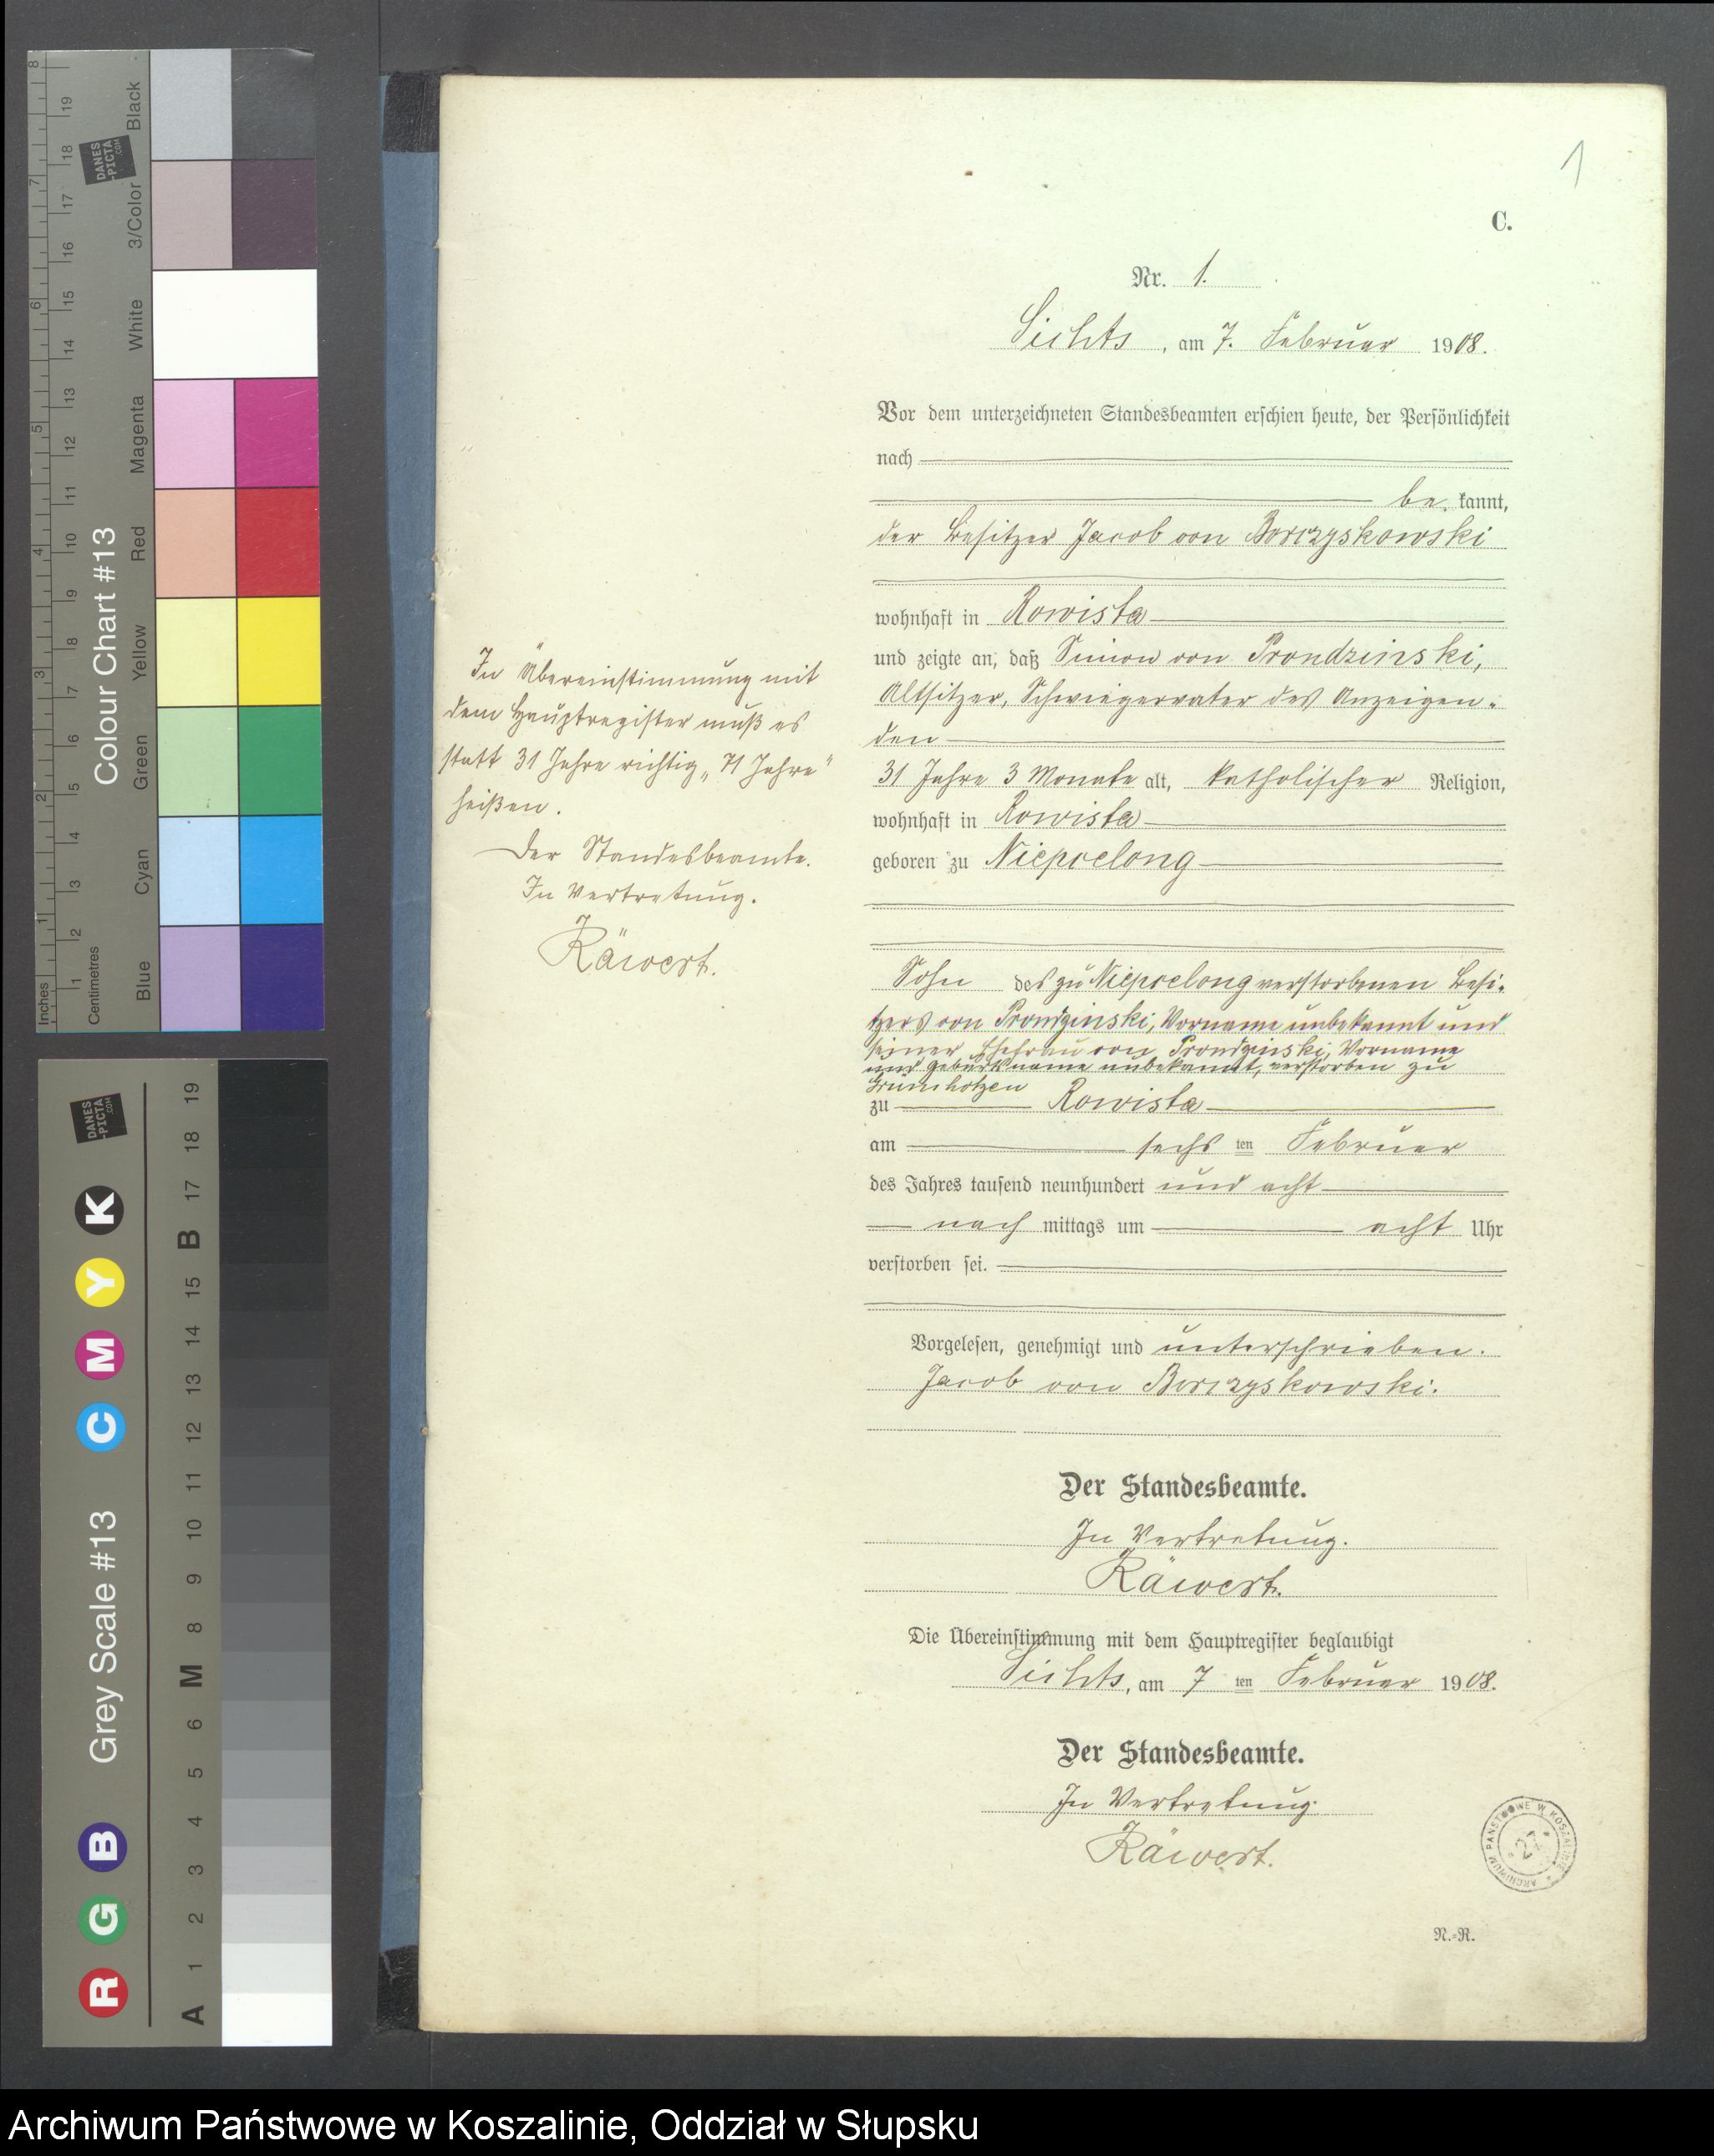 1
C.
Nr. 1.
Sichts, am 7. Februar 1908.
Vor dem unterzeichneten Standesbeamten erschien heute, der Persönlichkeit
nach
be kannt,
der Besitzer Jacob von Borczyskowski
wohnhaft in Rowista
und zeigte an, daß Simon von Prondzinski,
Altsitzer, Schwiegervater des Anzeigen-
den
31 Jahre 3 Monate alt, katholischer Religion,
wohnhaft in Rowista
geboren zu Niepoelong
Sohn des zu Niepoelong verstorbenen Besi-
tzers von Prondzinski, Vorname unbekannt und
seiner Ehefrau von Prondzinski, Vorname
und Geburtsname unbekannt, verstorben zu
Grünhotzen
zu Rowista
am sechs ten Februar
des Jahres tausend neunhundert und acht
nach mittags um acht Uhr
verstorben sei.
Vorgelesen, genehmigt und unterschrieben.
Jacob von Borczyskowski.
Der Standesbeamte.
In Vertretung.
Räwert.
Die Übereinstimmung mit dem Hauptregister beglaubigt
Sichts, am 7 ten Februar 1908.
Der Standesbeamte.
In Vertretung.
Räwert.
N.-R.
In Übereinstimmung mit
dem Hauptregister muß es
statt 31 Jahre richtig „71 Jahre"
heißen.
Der Standesbeamte.
In Vertretung.
Räwert.
ARCHIWUM PAŃSTWOWE W KOSZALINIE
Inches 1 2 3 4 5 6 7 8
Centimetres 1 2 3 4 5 6 7 8 9 10 11 12 13 14 15 16 17 18 19
Colour Chart #13
Blue Cyan Green Yellow Red Magenta White 3/Color Black
DANES
-PICTA
.COM
Grey Scale #13
R G B C M Y K
A 1 2 3 4 5 6 M 8 9 10 11 12 13 14 15 B 17 18 19
DANES
-PICTA
.COM
Archiwum Państwowe w Koszalinie, Oddział w Słupsku